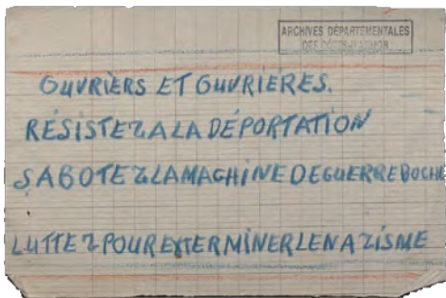 ARCHIVES DÉPARTEMENTALES
DES CÔTES D'ARMOR
OUVRIERS ET OUVRIÈRES.
RÉSISTEZ A LA DÉPORTATION
SABOTEZ LA MACHINE DE GUERRE BOCHE
LUTTEZ POUR EXTERMINER LE NAZISME